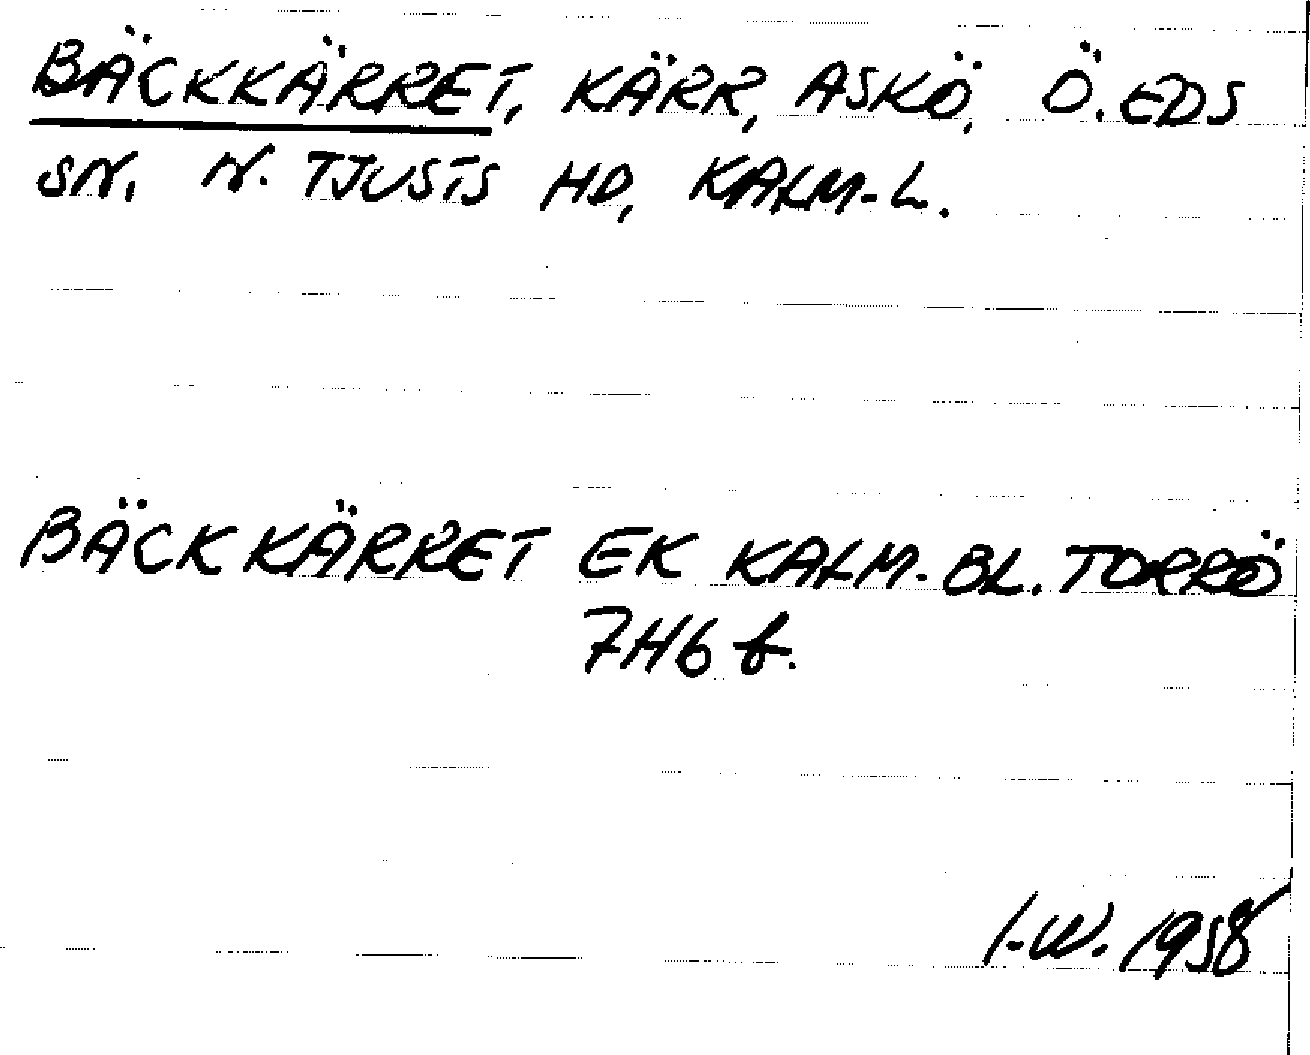 BÄCKKÄRRET, KÄRR, ASKÖ, Ö. EDS
SN. N. TJUSTS HD, KALM-L.
BÄCKKÄRRET EK KALM. BL. TORRÖ
7H6 f.
I-W. 1958